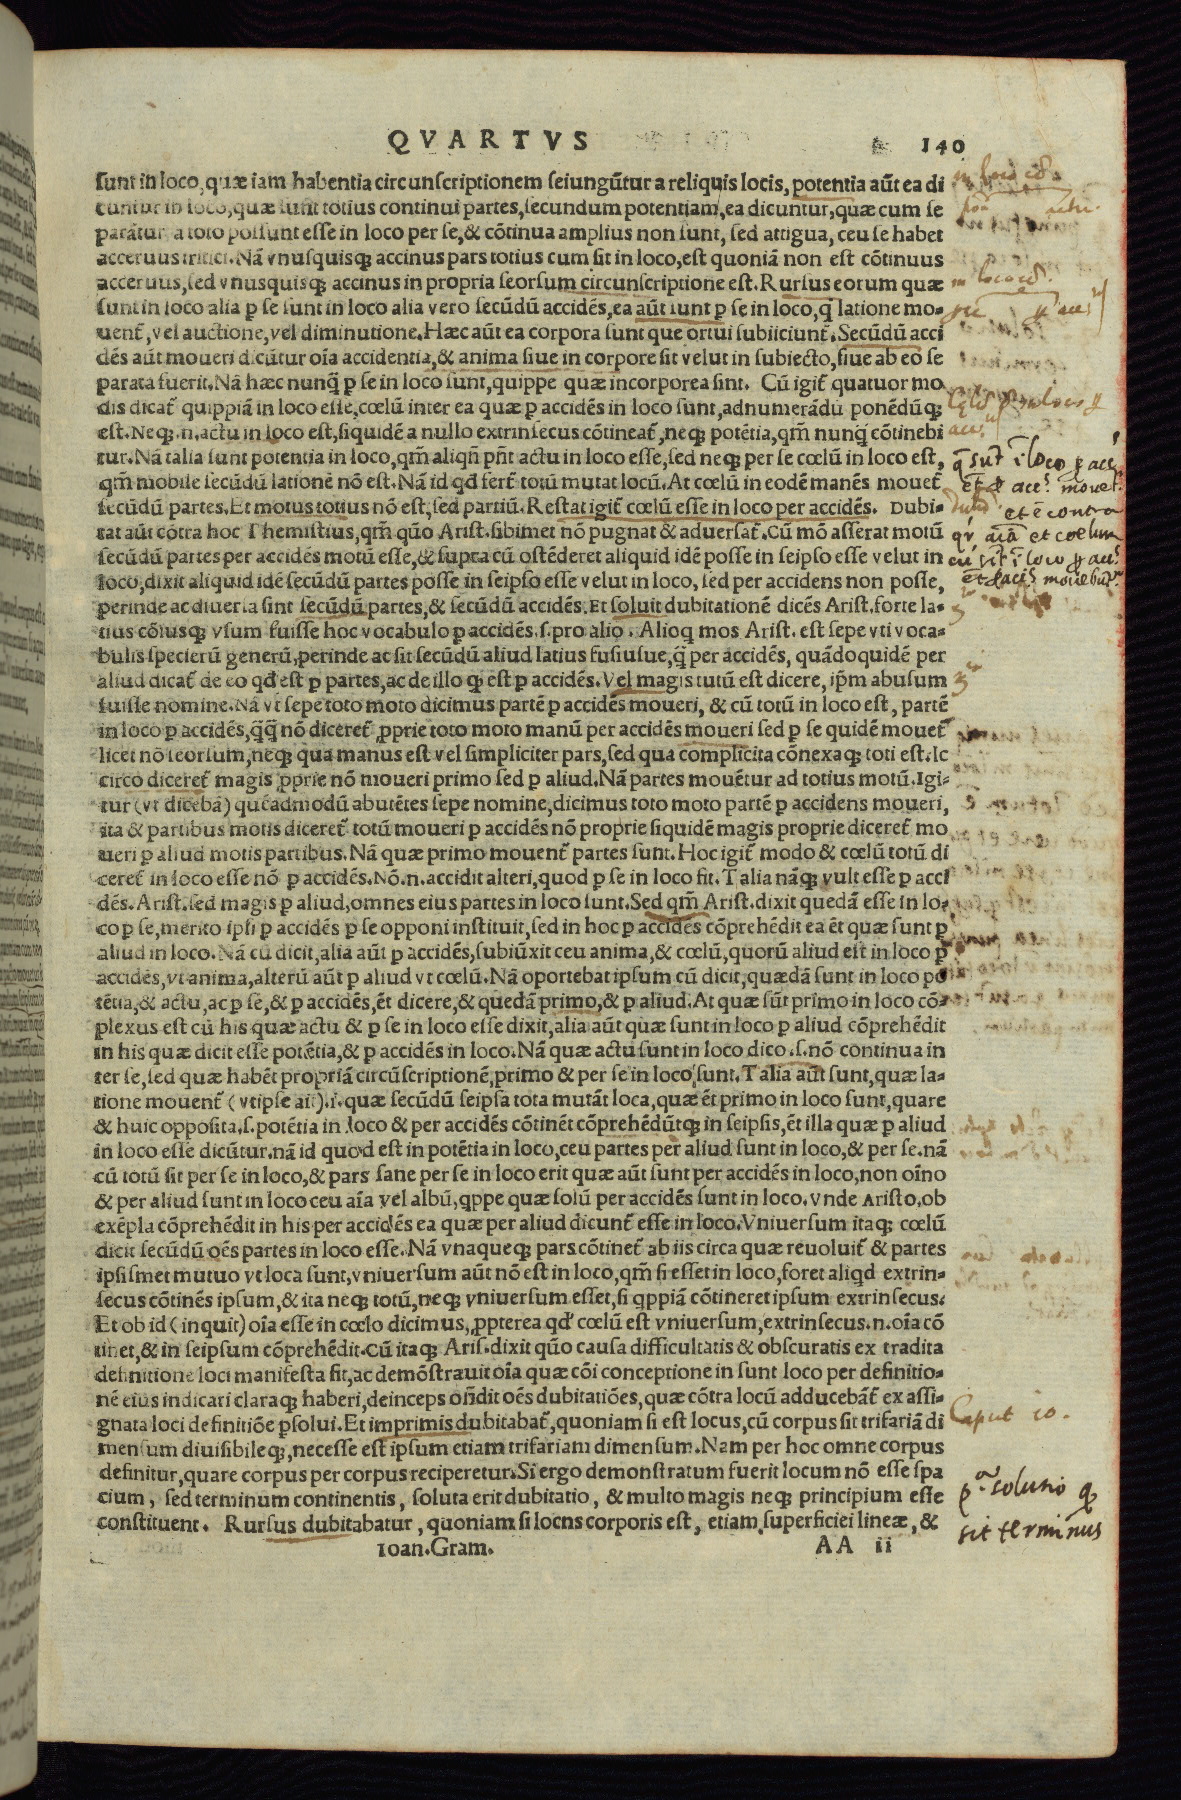 QVARTVS 140
sunt in loco, quæ iam habentia circunscriptionem seiungũtur a reliquis locis, potentia aũt ea di
cuntur in loco, quæ sunt totius continui partes, secundum potentiam, ea dicuntur, quæ cum se
parãtur a toto possunt esse in loco per se, & cõtinua amplius non sunt, sed attigua, ceu se habet
aceruus tritici. Nã vnusquisqꝫ accinus pars totius cum sit in loco, est quoniã non est cõtinuus
aceruus, sed vnusquisqꝫ accinus in propria seorsum circunscriptione est. Rursus eorum quæ
sunt in loco alia ꝑ se sunt in loco alia vero secũdũ accidẽs, ea aũt sunt ꝑ se in loco, q̃ latione mo-
uent᷑, vel auctione, vel diminutione. Hæc aũt ea corpora sunt que ortui subiiciunt᷑. Secũdũ acci
dẽs aũt moueri dicũtur oĩa accidentia, & anima siue in corpore sit velut in subiecto, siue ab eo se
parata fuerit. Nã hæc nunq̃ ꝑ se in loco sunt, quippe quæ incorporea sint. Cũ igit᷑ quatuor mo
dis dicat᷑ quippiã in loco esse, cœlũ inter ea quæ ꝑ accidẽs in loco sunt, adnumerãdũ ponẽdũqꝫ
est. Neqꝫ .n. actu in loco est, siquidẽ a nullo extrinsecus cõtineat᷑, neqꝫ potẽtia, qm̃ nunq̃ cõtinebi
tur. Nã talia sunt potentia in loco, qm̃ aliqñ pñt actu in loco esse, sed neqꝫ per se cœlũ in loco est,
qm̃ mobile secũdũ lationẽ nõ est. Nã id qđ fert᷑ totũ mutat locũ. At cœlũ in eodẽ manẽs mouet᷑
secũdũ partes. Et motus totius nõ est, sed partiũ. Restat igit᷑ cœlũ esse in loco per accidẽs. Dubi-
tat aũt cõtra hoc Themistius, qm̃ quõ Arist. sibimet nõ pugnat & aduersat᷑. Cũ mõ asserat motũ
secũdũ partes per accidẽs motũ esse, & supra cũ ostẽderet aliquid idẽ posse in seipso esse velut in
loco, dixit aliquid idẽ secũdũ partes posse in seipso esse velut in loco, sed per accidens non posse,
perinde ac diuersa sint secũdũ partes, & secũdũ accidẽs. Et soluit dubitationẽ dicẽs Arist. forte la-
tius cõiusqꝫ vsum fuisse hoc vocabulo ꝑ accidẽs .s. pro alio. Alioq mos Arist. est sepe vti voca-
bulis specierũ generũ, perinde ac sit secũdũ aliud latius fusiusue, q̃ per accidẽs, quãdoquidẽ per
aliud dicat᷑ de eo qđ est ꝑ partes, ac de illo qꝫ est ꝑ accidẽs. Vel magis tutũ est dicere, ip̃m abusum
fuisse nomine. Nã vt sepe toto moto dicimus partẽ ꝑ accidẽs moueri, & cũ totũ in loco est, partẽ
in loco ꝑ accidẽs, q̃q̃ nõ diceret᷑ ꝓprie toto moto manũ per accidẽs moueri sed ꝑ se quidẽ mouet᷑
licet nõ seorsum, neqꝫ qua manus est vel simpliciter pars, sed qua complicita cõnexaqꝫ toti est. Ic
circo diceret᷑ magis ꝓprie nõ moueri primo sed ꝑ aliud. Nã partes mouẽtur ad totius motũ. Igi-
tur (vt dicebã) quẽadmodũ abutẽtes sepe nomine, dicimus toto moto partẽ ꝑ accidens moueri,
ita & partibus motis diceret᷑ totũ moueri ꝑ accidẽs nõ proprie siquidẽ magis proprie diceret᷑ mo
ueri ꝑ aliud motis partibus. Nã quæ primo mouent᷑ partes sunt. Hoc igit᷑ modo & cœlũ totũ di
ceret᷑ in loco esse nõ ꝑ accidẽs. Nõ .n. accidit alteri, quod ꝑ se in loco fit. Talia nãqꝫ vult esse ꝑ acci
dẽs. Arist. sed magis ꝑ aliud, omnes eius partes in loco sunt. Sed qm̃ Arist. dixit quedã esse in lo-
co ꝑ se, merito ipsi ꝑ accidẽs ꝑ se opponi instituit, sed in hoc ꝑ accidẽs cõprehẽdit ea ẽt quæ sunt ꝑ
aliud in loco. Nã cũ dicit, alia aũt ꝑ accidẽs, subiũxit ceu anima, & cœlũ, quorũ aliud est in loco ꝑ
accidẽs, vt anima, alterũ aũt ꝑ aliud vt cœlũ. Nã oportebat ipsum cũ dicit, quædã sunt in loco po
tẽtia, & actu, ac ꝑ se, & ꝑ accidẽs, ẽt dicere, & quedã primo, & ꝑ aliud. At quæ sũt primo in loco cõ-
plexus est cũ his quæ actu & ꝑ se in loco esse dixit, alia aũt quæ sunt in loco ꝑ aliud cõprehẽdit
in his quæ dicit esse potẽtia, & ꝑ accidẽs in loco. Nã quæ actu sunt in loco dico .s. nõ continua in
ter se, sed quæ habẽt propriã circũscriptionẽ, primo & per se in loco sunt. Talia aũt sunt, quæ la-
tione mouent᷑ (vt ipse ait) .i. quæ secũdũ seipsa tota mutãt loca, quæ ẽt primo in loco sunt, quare
& huic opposita .s. potẽtia in loco & per accidẽs cõtinẽt cõprehẽdũtqꝫ in seipsis, ẽt illa quæ ꝑ aliud
in loco esse dicũtur. nã id quod est in potẽtia in loco, ceu partes per aliud sunt in loco, & per se. nã
cũ totũ sit per se in loco, & pars sane per se in loco erit quæ aũt sunt per accidẽs in loco, non oĩno
& per aliud sunt in loco ceu aĩa vel albũ, qppe quæ solũ per accidẽs sunt in loco. vnde Aristo. ob
exẽpla cõprehẽdit in his per accidẽs ea quæ per aliud dicunt᷑ esse in loco. Vniuersum itaqꝫ cœlũ
dicit secũdũ oẽs partes in loco esse. Nã vnaqueqꝫ pars cõtinet᷑ ab iis circa quæ reuoluit᷑ & partes
ipsismet mutuo vt loca sunt, vniuersum aũt nõ est in loco, qm̃ si esset in loco, foret aliqd extrin-
secus cõtinẽs ipsum, & ita neqꝫ totũ, neqꝫ vniuersum esset, si qppiã cõtineret ipsum extrinsecus.
Et ob id (inquit) oĩa esse in cœlo dicimus, ꝓpterea qđ cœlũ est vniuersum, extrinsecus .n. oĩa cõ
tinet, & in seipsum cõprehẽdit. Cũ itaqꝫ Aris. dixit quõ causa difficultatis & obscuratis ex tradita
definitione loci manifesta fit, ac demõstrauit oĩa quæ cõi conceptione insunt loco per definitio-
nẽ eius indicari claraqꝫ haberi, deinceps oñdit oẽs dubitatiões, quæ cõtra locũ adducebãt᷑ ex assi-
gnata loci definitiõe ꝑsolui. Et imprimis dubitabat᷑, quoniam si est locus, cũ corpus sit trifariã di
mensum diuisibileqꝫ, necesse est ipsum etiam trifariam dimensum. Nam per hoc omne corpus
definitur, quare corpus per corpus reciperetur. Si ergo demonstratum fuerit locum nõ esse spa
cium, sed terminum continentis, soluta erit dubitatio, & multo magis neqꝫ principium esse
constituent. Rursus dubitabatur, quoniam si locns corporis est, etiam superficiei lineæ, &
Ioan. Gram. AA ii
q̃ sut̃ ĩ loco ꝑ acc.
et ꝑ acc. mouet.
et ẽ contra
qr aĩa et cœlum
cũ sit ĩ loco ꝑ acc.
Caput 10.
pᵃ. solutio qꝫ
sit terminus